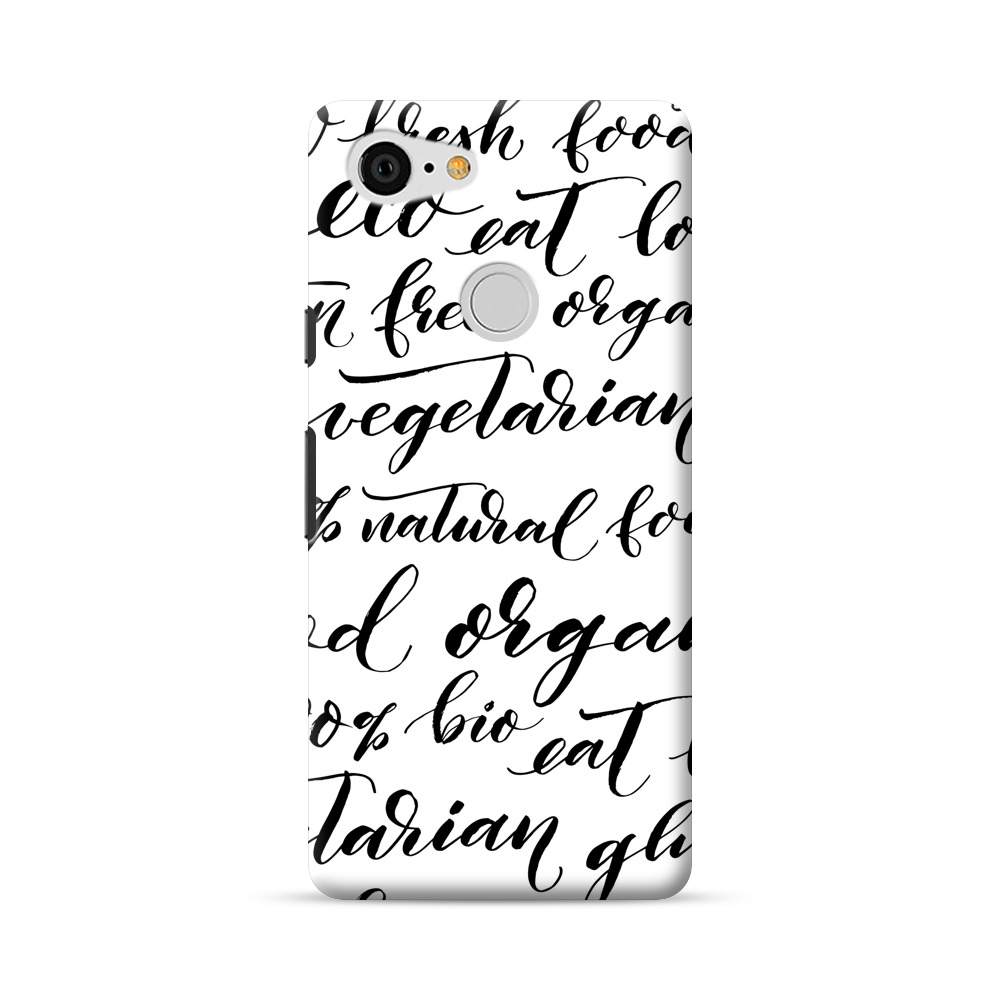 fresh food
eat lo
n free orga
vegetarian
% natural foo
od organ
00% bio
eat l
tarian glu